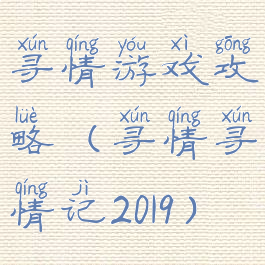 xún qíng yóu xì gōng
寻情游戏攻
lüè xún qíng xún
略（寻情寻
qíng jì
情记2019）